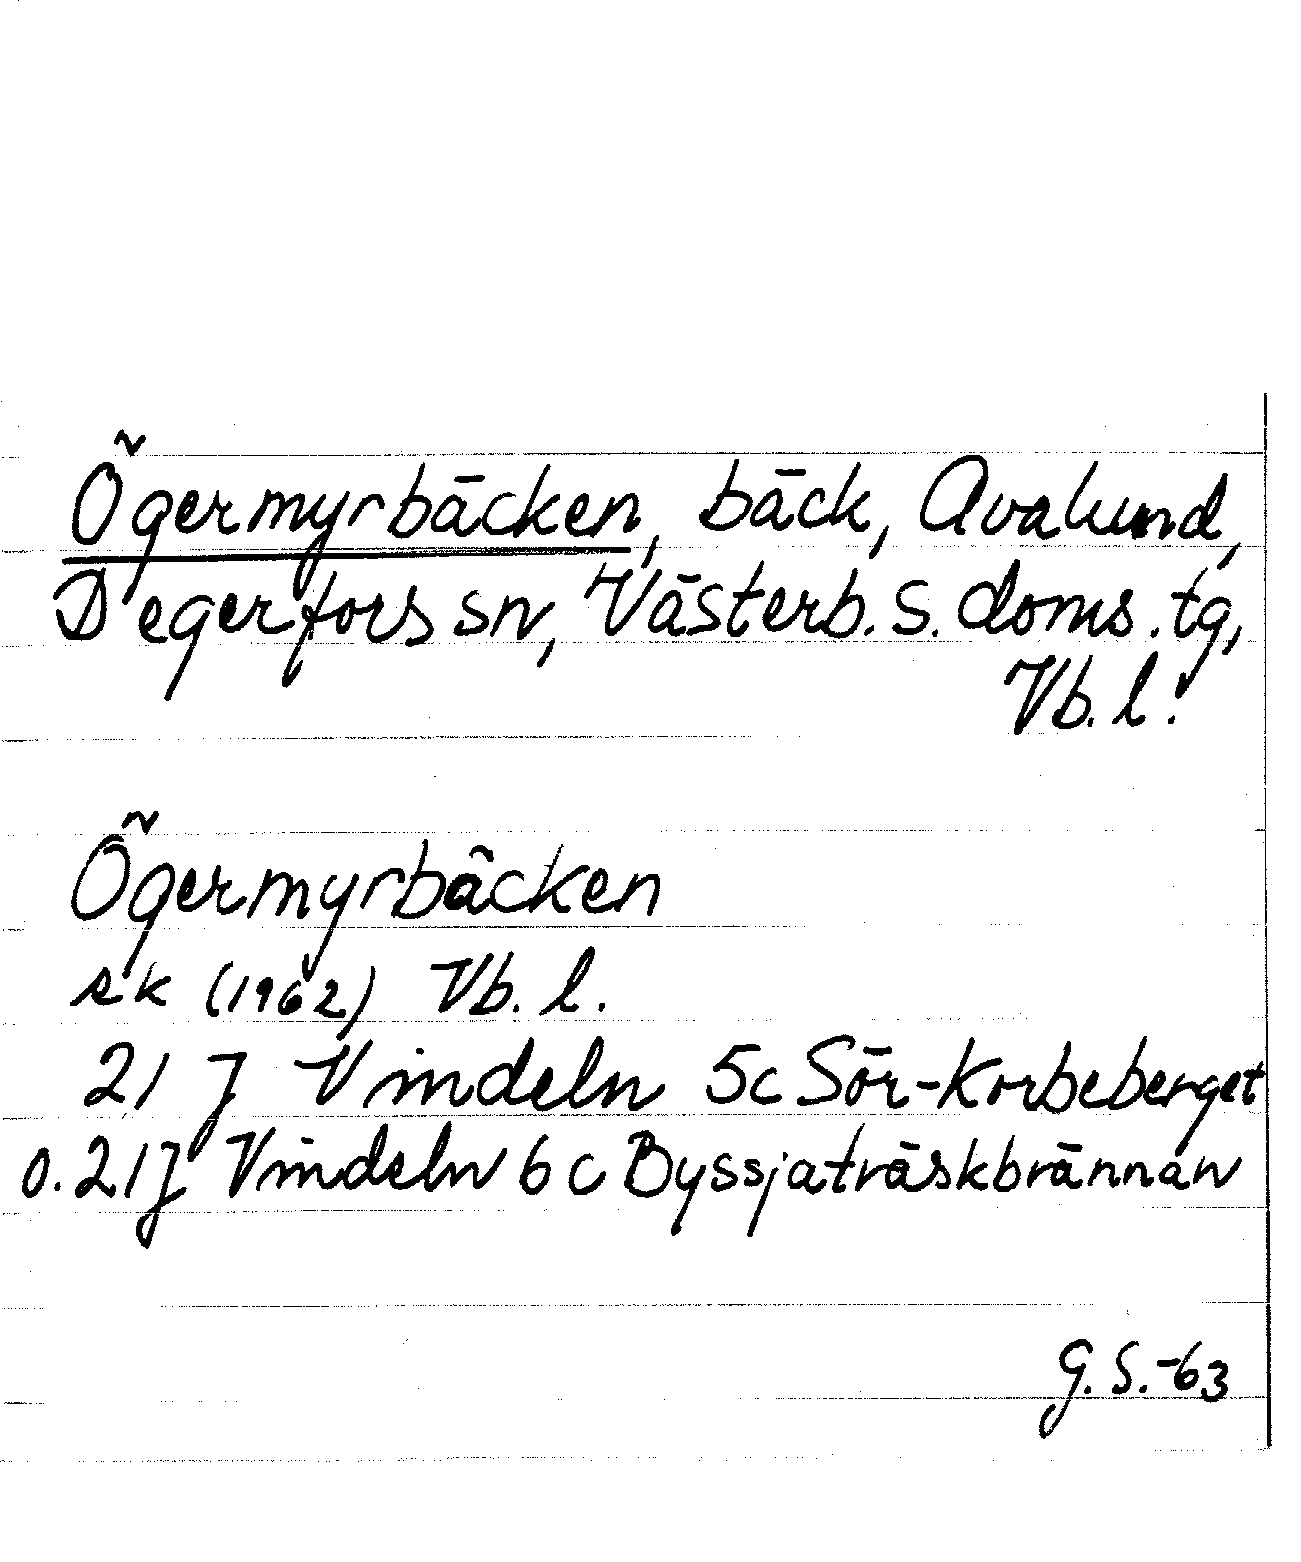 Ögermyrbäcken, bäck, Avalund,
Degerfors sn, Västerb. s. doms. tg,
Vb. l.
Ögermyrbäcken
sk (1962) Vb. l.
21 J Vindeln 5c Sör-Korbeberget
o. 21J Vindeln 6c Byssjaträskbrännan
G. S. -63